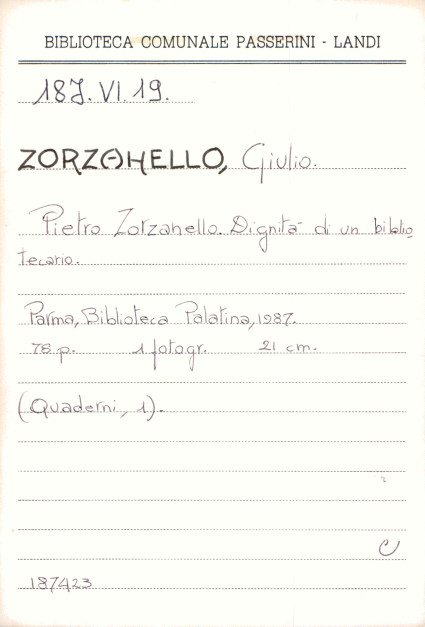 BIBLIOTECA COMUNALE PASSERINI - LANDI
187. VI. 19.
ZORZANELLO, Giulio.
Pietro Zorzanello. Dignità di un biblio
tecario.
Parma, Biblioteca Palatina, 1987.
78 p. 1 fotogr. 21 cm.
(Quaderni, 1).
C
187423